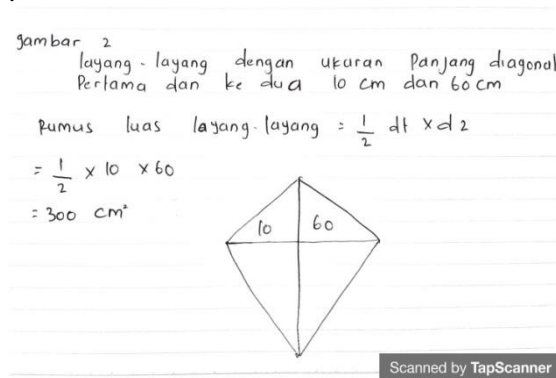 gambar 2
layang-layang dengan ukuran Panjang diagonal
Pertama dan ke dua 10 cm dan 60 cm
Rumus luas layang-layang = 1/2 d1 x d2
= 1/2 x 10 x 60
= 300 cm²
10 60
Scanned by TapScanner